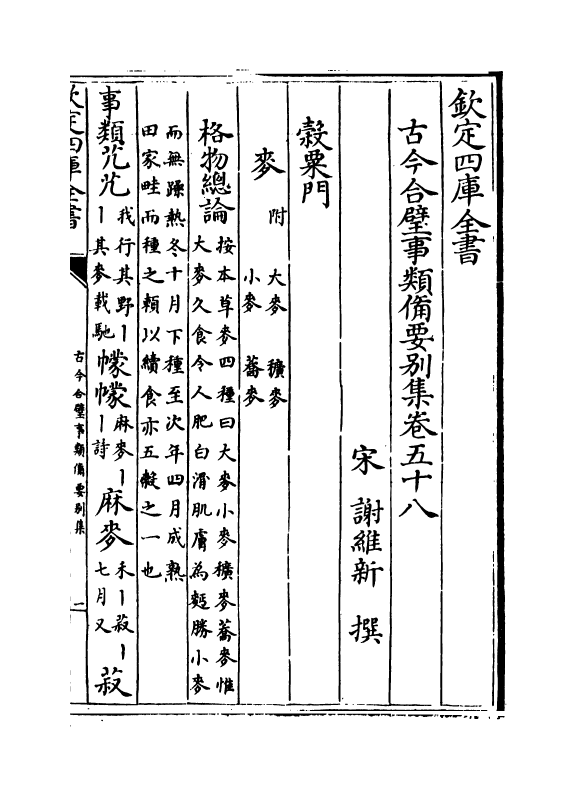 欽定四庫全書
古今合璧事類備要别集卷五十八
宋 謝維新 撰
穀粟門
麥 附 大麥 穬麥
小麥 蕎麥
格物總論 按本草麥四種曰大麥小麥穬麥蕎麥惟
大麥久食令人肥白滑肌膚為麫勝小麥
而無躁熱冬十月下種至次年四月成熟
田家畦而種之頼以續食亦五糓之一也
事類芃芃 我行其野丨丨其麥載馳 幪幪 麻麥丨丨詩 麻麥 禾丨菽丨七月又 菽
欽定四庫全書
古今合璧事類備要别集
一